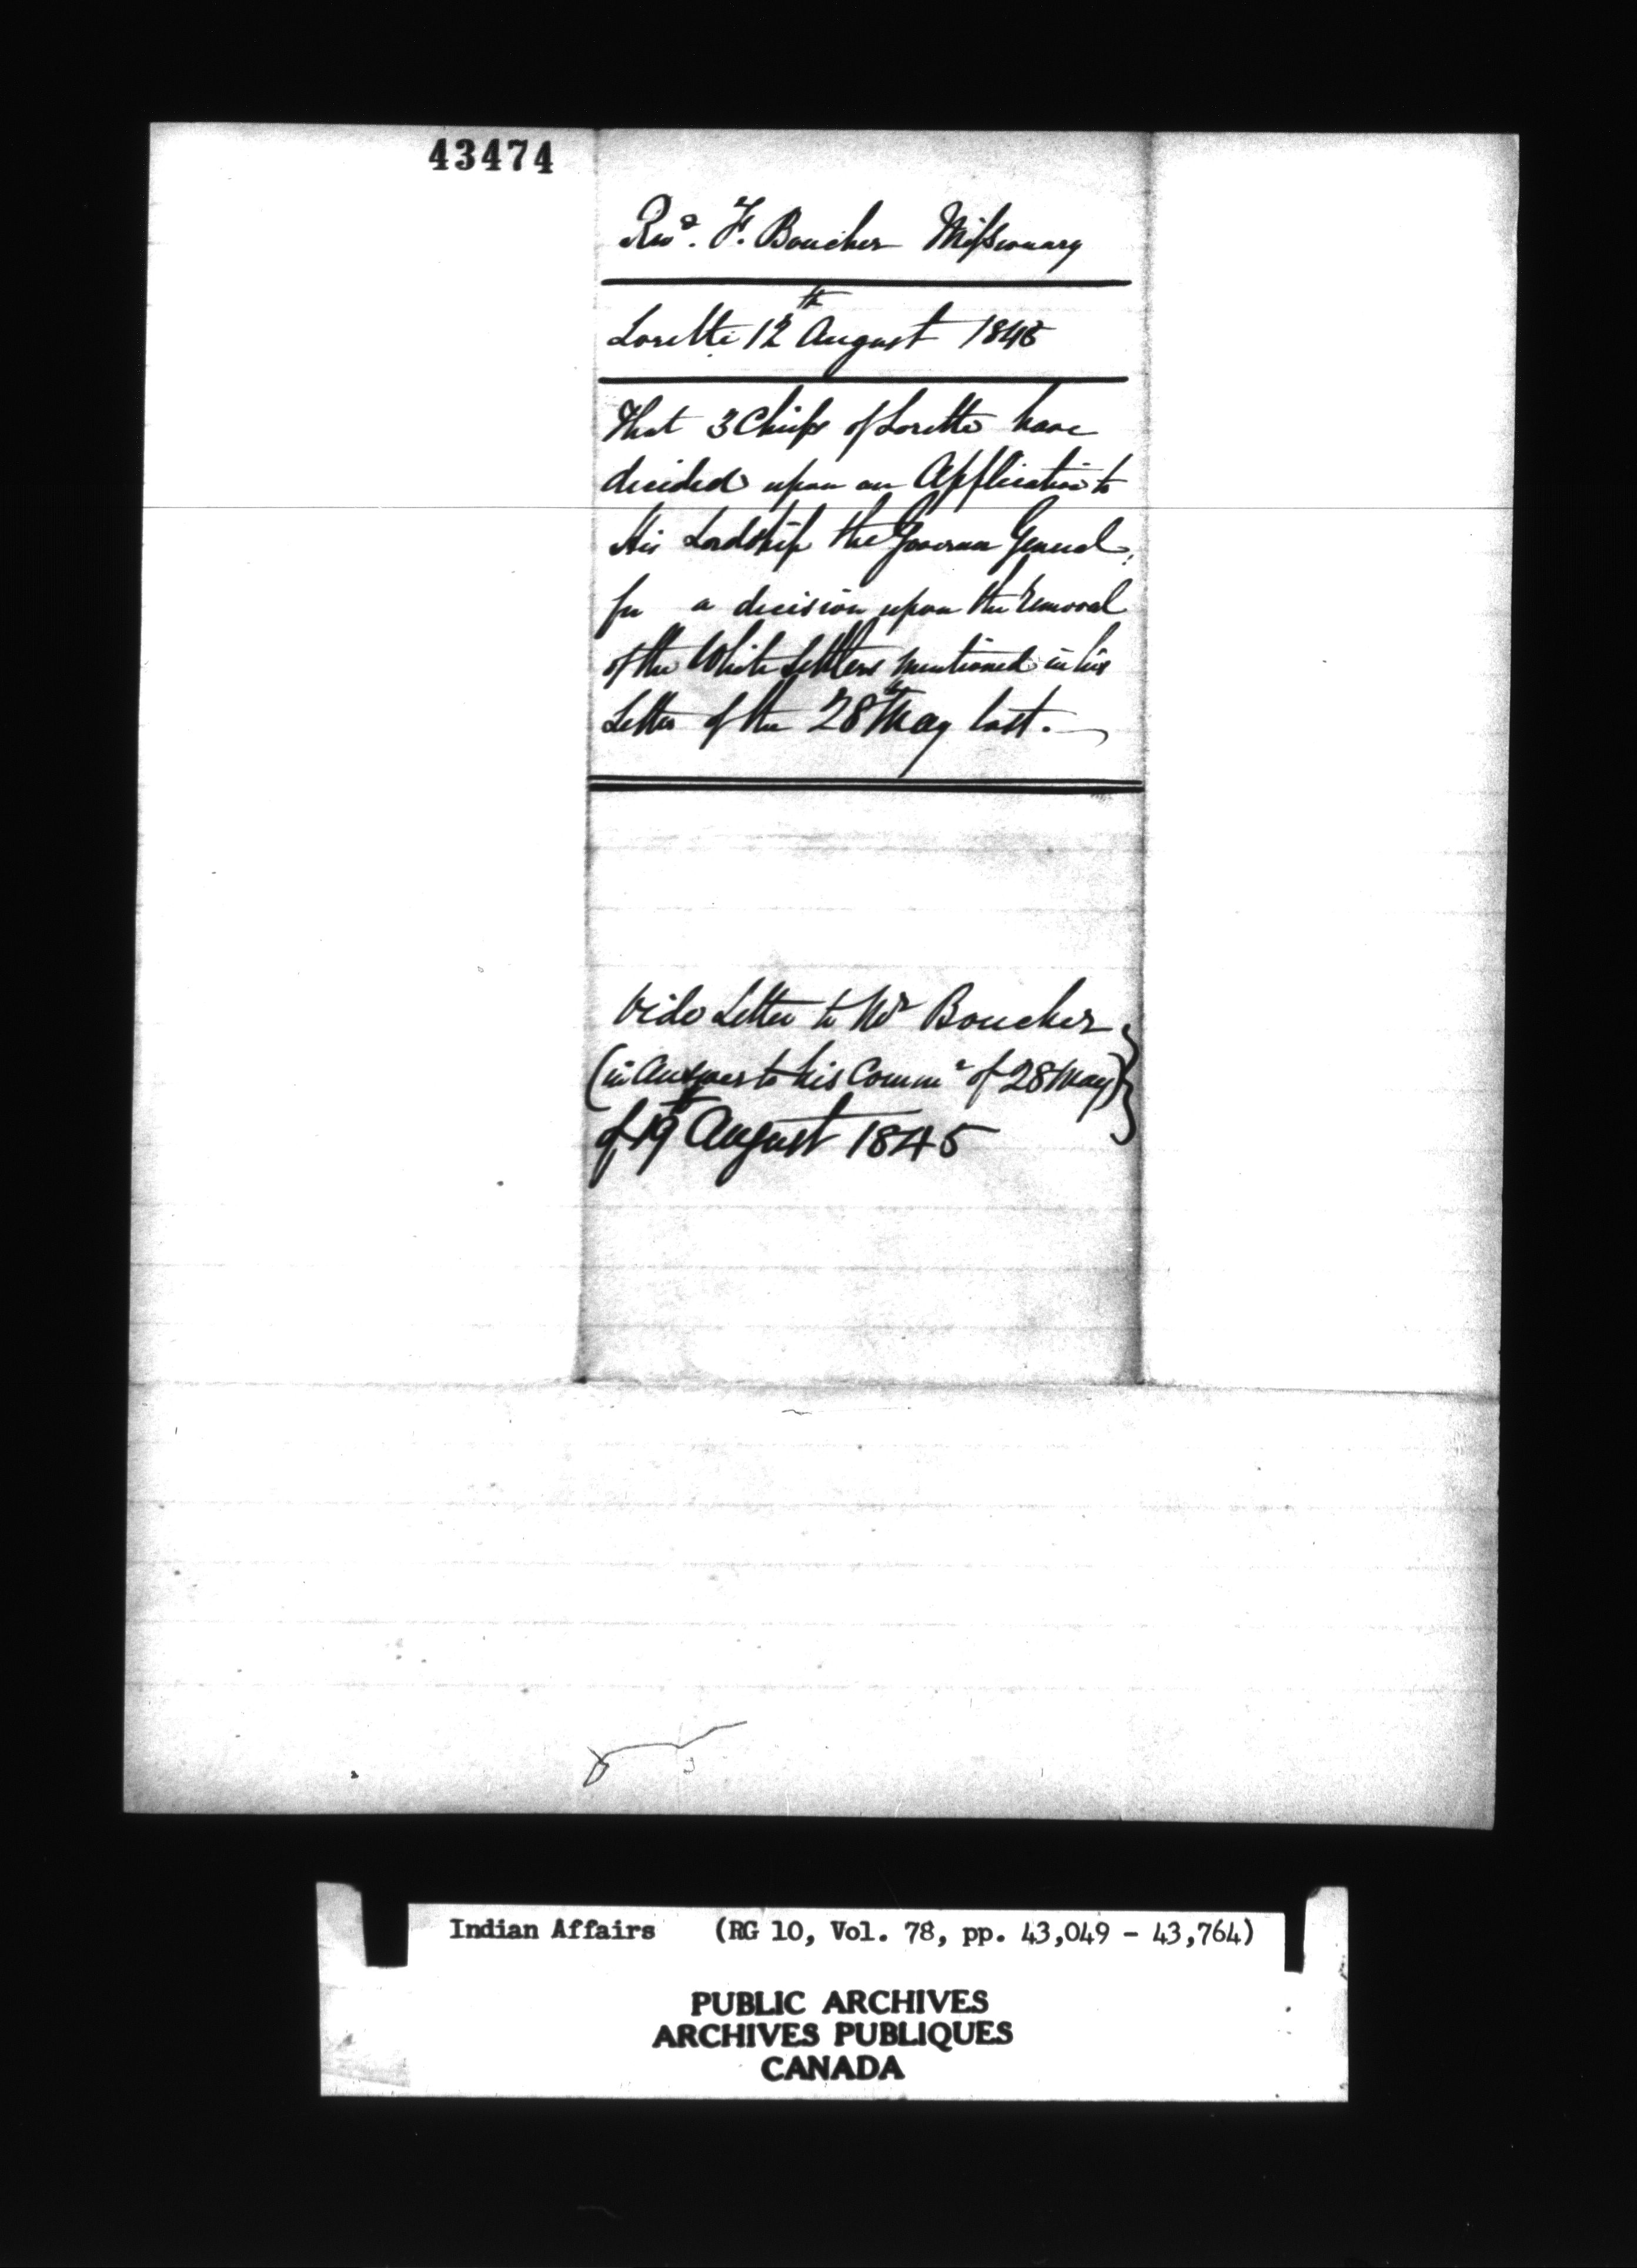 43474
Revd. F. Boucher Missionary
Lorette 12th August 1845
That 3 Chiefs of Lorette have
decided upon an Application to
His Lordship the Governor General,
for a decision upon the removal
of the White Settlers mentioned in his
Letter of the 28th May last.
Vide Letter to Mr Boucher
(in answer to his Commn of 28 May)
of 19th August 1845
Indian Affairs (RG 10, Vol. 78, pp. 43,049 - 43,764)
PUBLIC ARCHIVES
ARCHIVES PUBLIQUES
CANADA